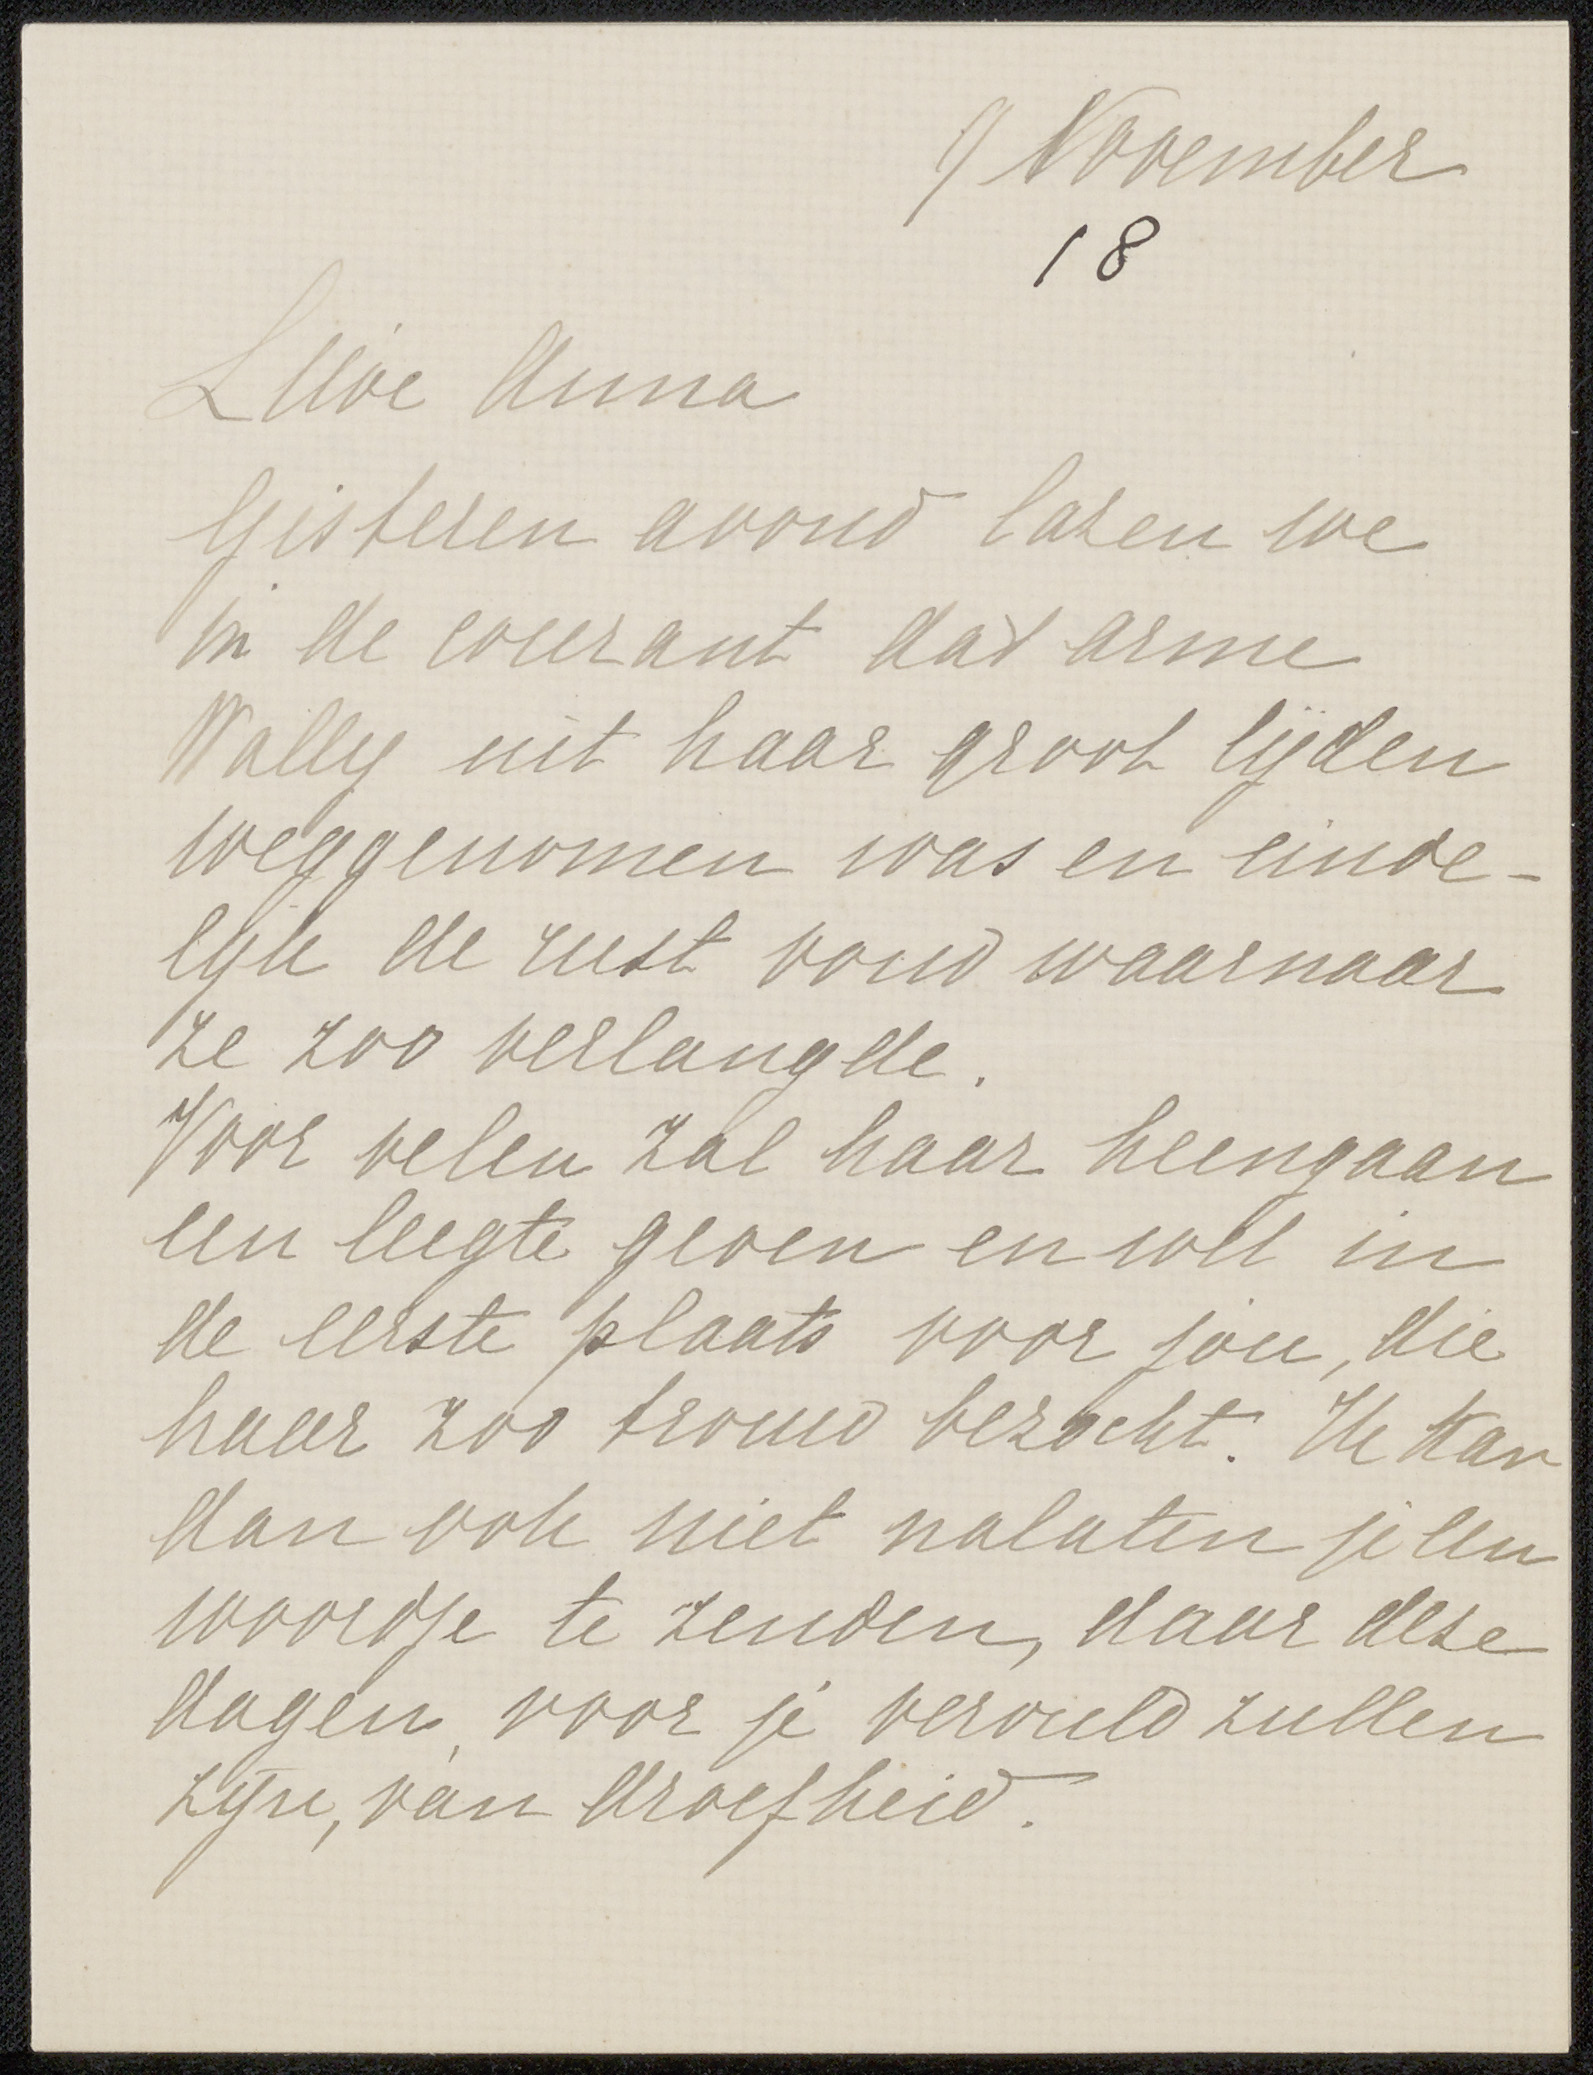 9 November
18
Lieve Anna
Gisteren avond lazen we
in de courant dat arme
Wally uit haar groot lijden
weggenomen was en einde-
lijk de rust vond waarnaar
ze zoo verlangde.
Voor velen zal haar heengaan
een leegte geven en wel in
de eerste plaats voor jou, die
haar zoo trouw bezocht. Ik kan
dan ook niet nalaten je een
woordje te zenden, daar deze
dagen, voor je vervuld zullen
zijn, van droefheid.